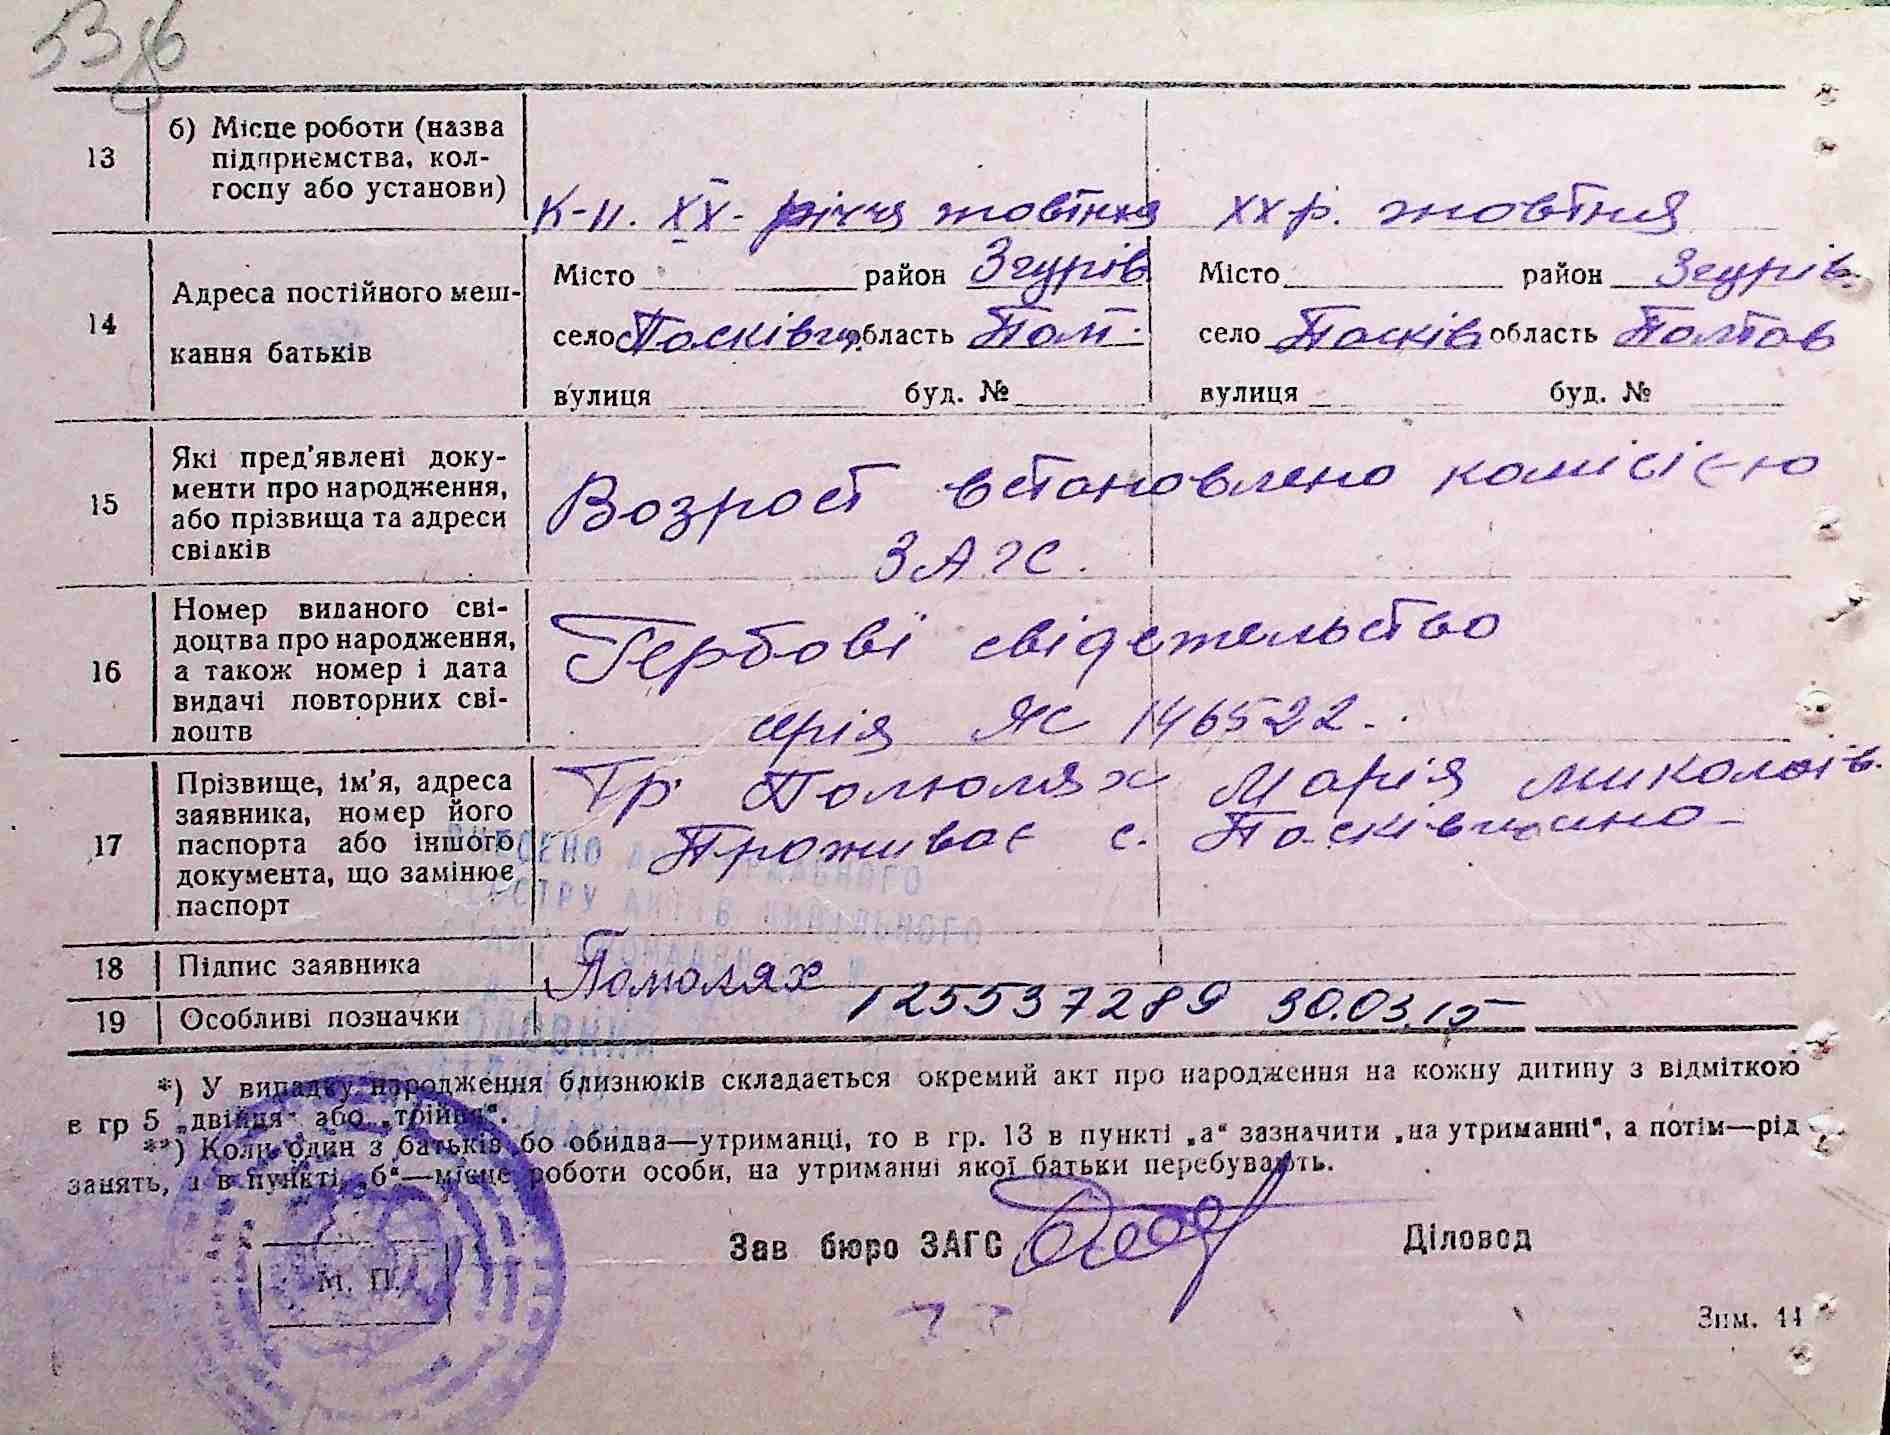 5386
13 б) Місце роботи (назва
підприємства, кол-
госпу або установи)
К-п. ХХ- річчя жовтня ХХ р. жовтня
14 Адреса постійного меш-
кання батьків
Місто район Згурів Місто район Згурів.
село Пасківщ область Полт. село Пасків область Полтав
вулиця буд. № вулиця буд. №
15 Які пред'явлені доку-
менти про народження,
або прізвища та адреси
свідків
Возраст встановлено комісією
ЗАГС.
16 Номер виданого сві-
доцтва про народження,
а також номер і дата
видачі повторних сві-
доцтв
Гербові свідетельство
серія ЯС 146522.
17 Прізвище, ім'я, адреса
заявника, номер його
паспорта або іншого
документа, що замінює
паспорт
Гр. Полюлях Марія Миколаїв.
Проживає с. Пасківщино
18 Підпис заявника Помолях
19 Особливі позначки 125537289 30.03.15
*) У випадку народження близнюків складається окремий акт про народження на кожну дитину з відміткою
в гр 5 „двійця“ або „трійця“.
**) Коли один з батьків бо обидва—утриманці, то в гр. 13 в пункті „а“ зазначити „на утриманні“, а потім—рід
занять, а в пункті „б“—місце роботи особи, на утриманні якої батьки перебувають.
Зав бюро ЗАГС Діловод
М. П.
Зим. 44